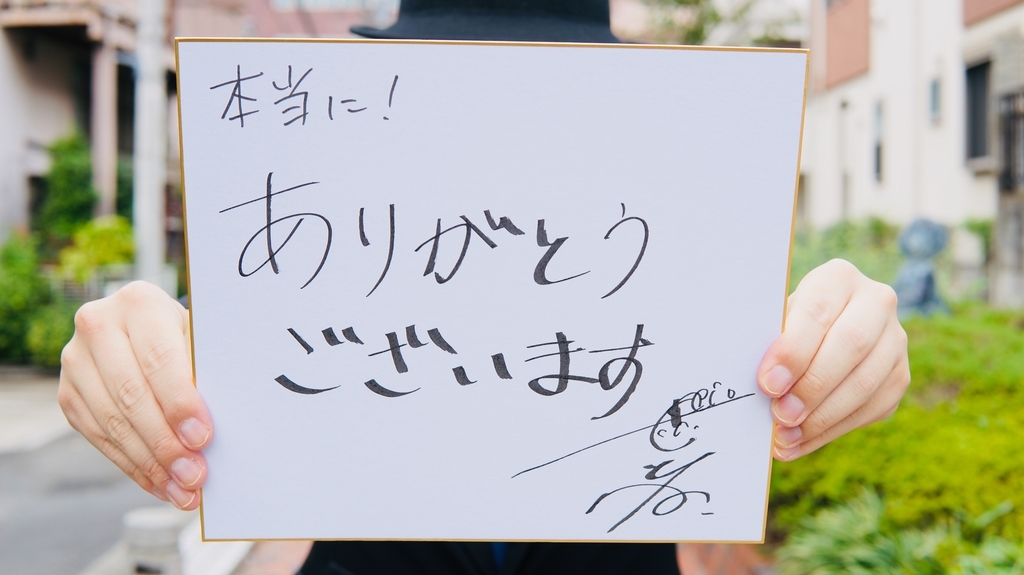 本当に!
ありがとう
ございます